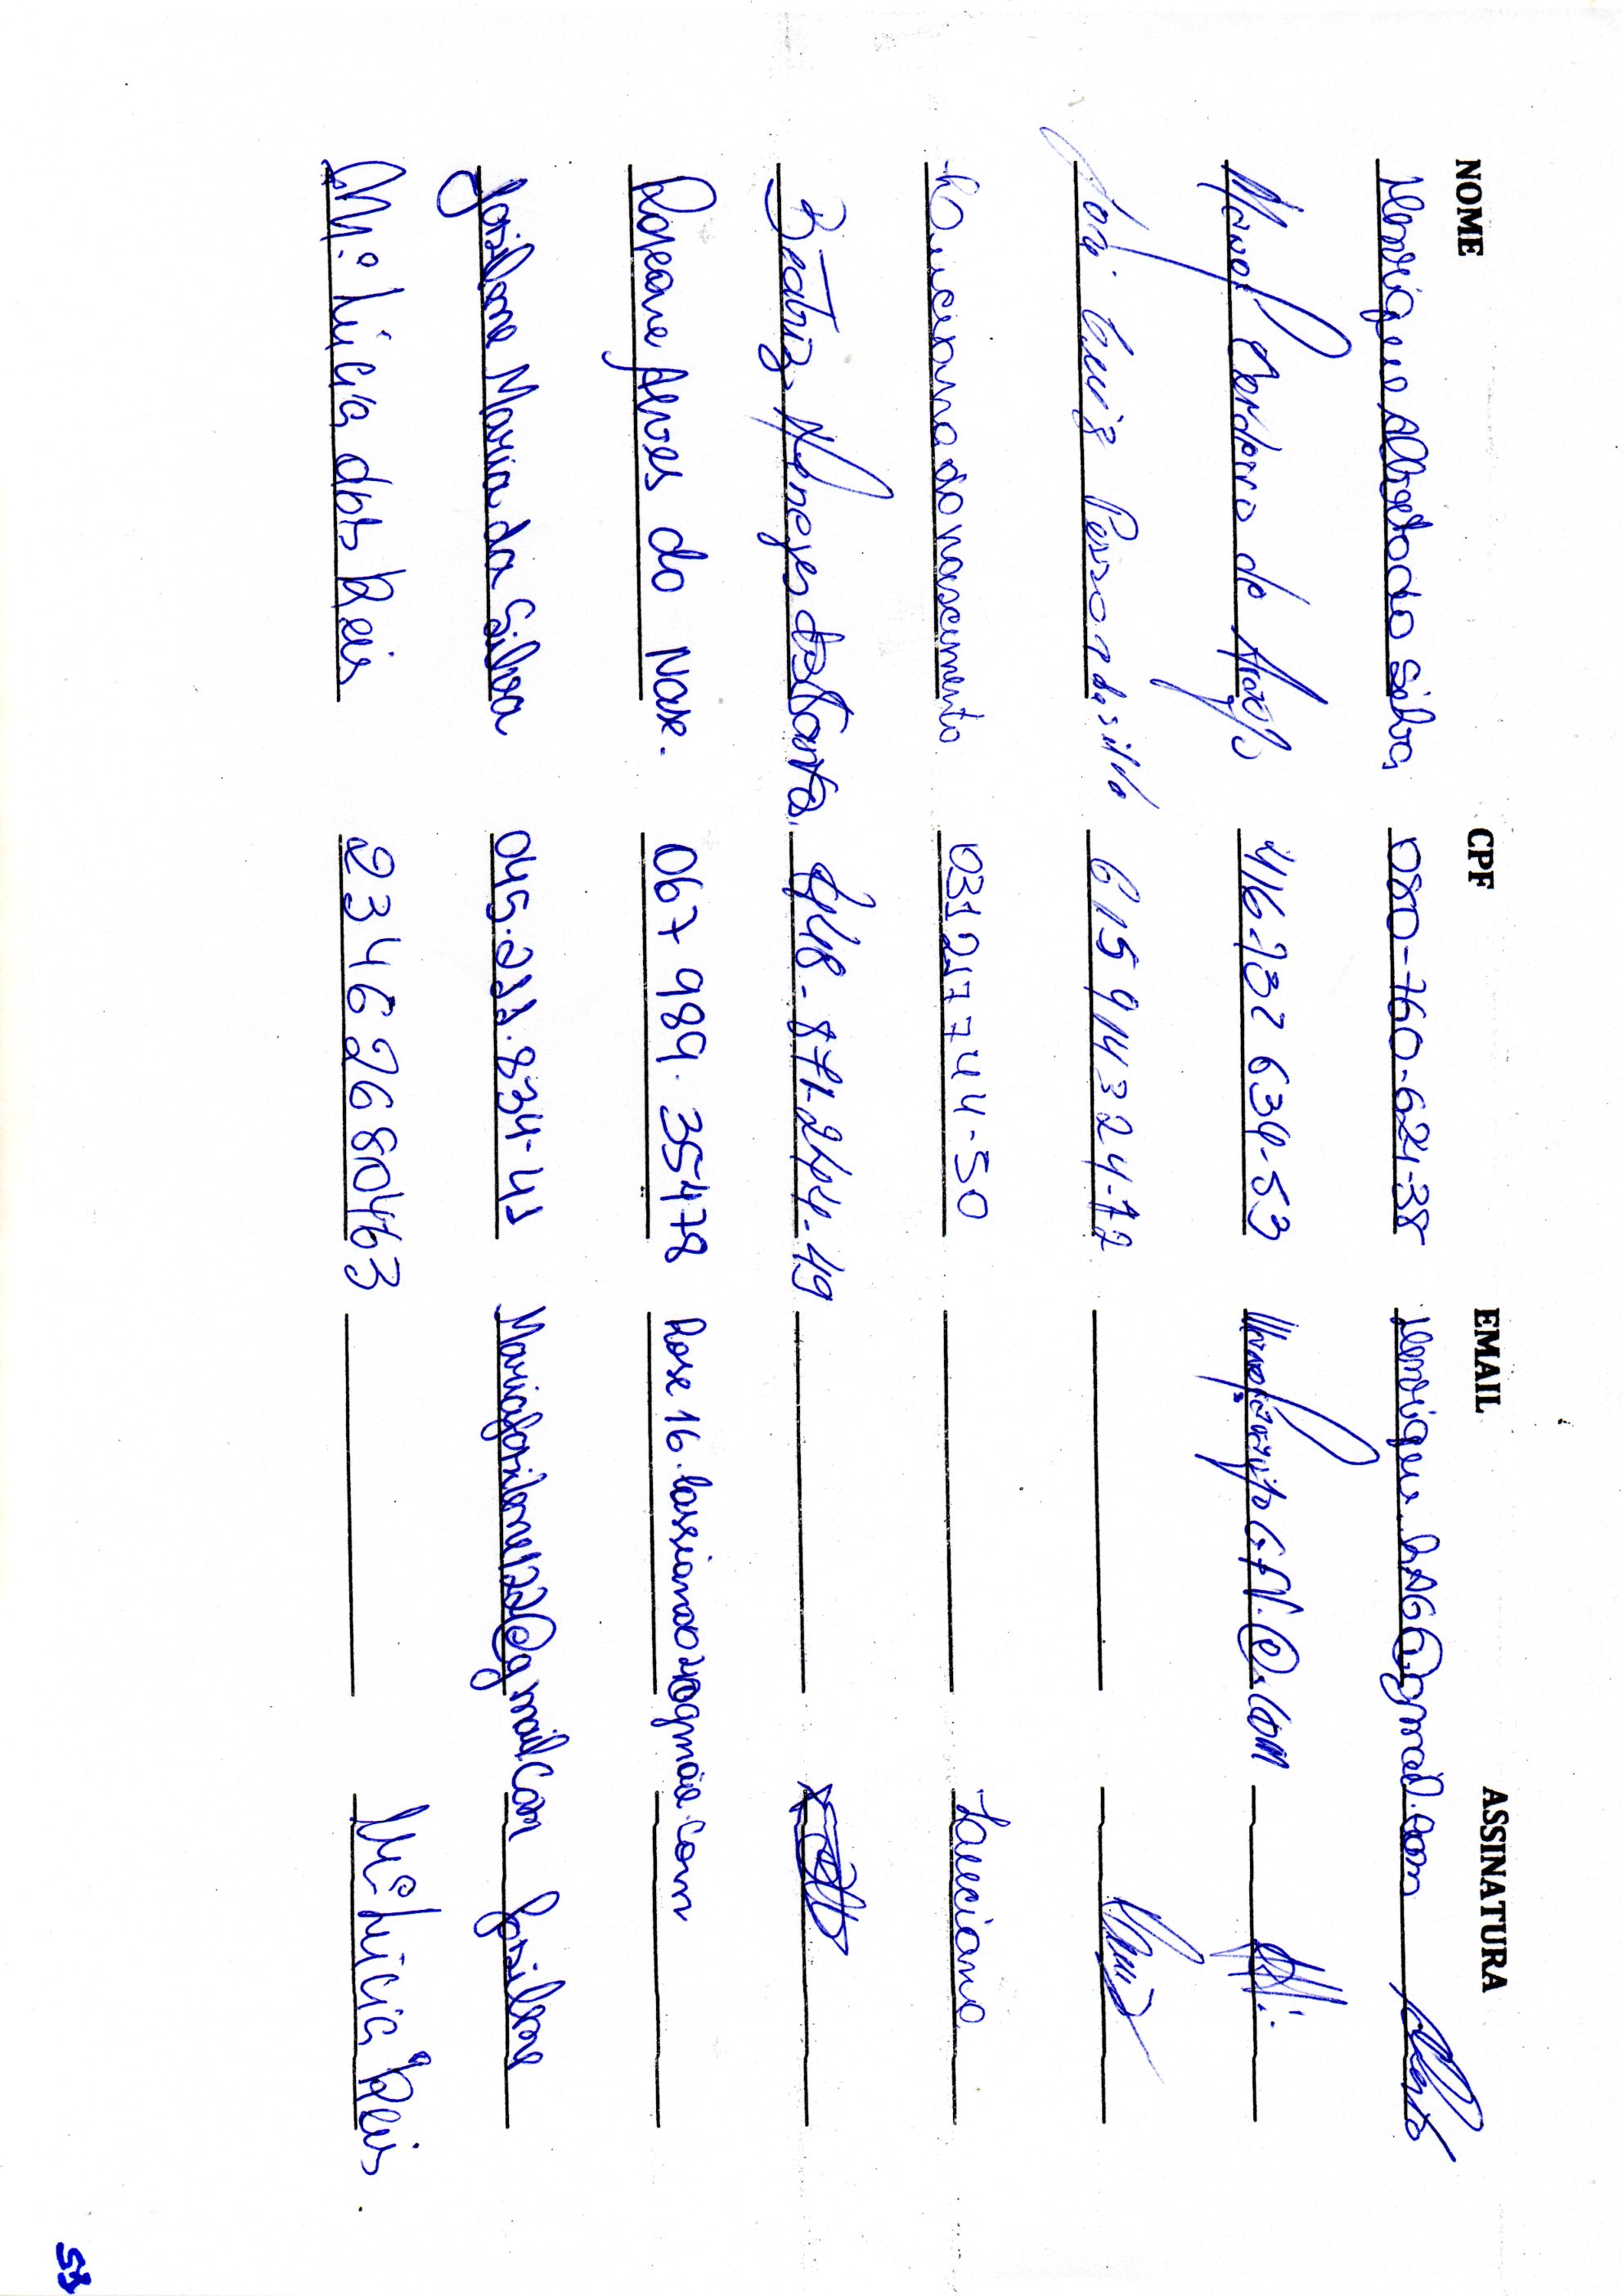 NOME CPF EMAIL ASSINATURA
Henrique Alberto da Silva 080-760-624-38 henrique.has6@gmail.com
Manoel Cordeiro de Araújo 416.732 634-53
José Luiz Pessoa da silva 615 914 324-72 Luiz
Luciana do nascimento 031217744-50 Luciana
Beatriz Menezes dos Santos 448-871-244-49
Roseane Alves do Nasc. 067 989. 35478
Josilene Maria da Silva 045.211.834-41 Mariajosilene122@gmail.com Josilene
Mª Lúcia dos Reis 23462680463 Mª Lúcia Reis
53